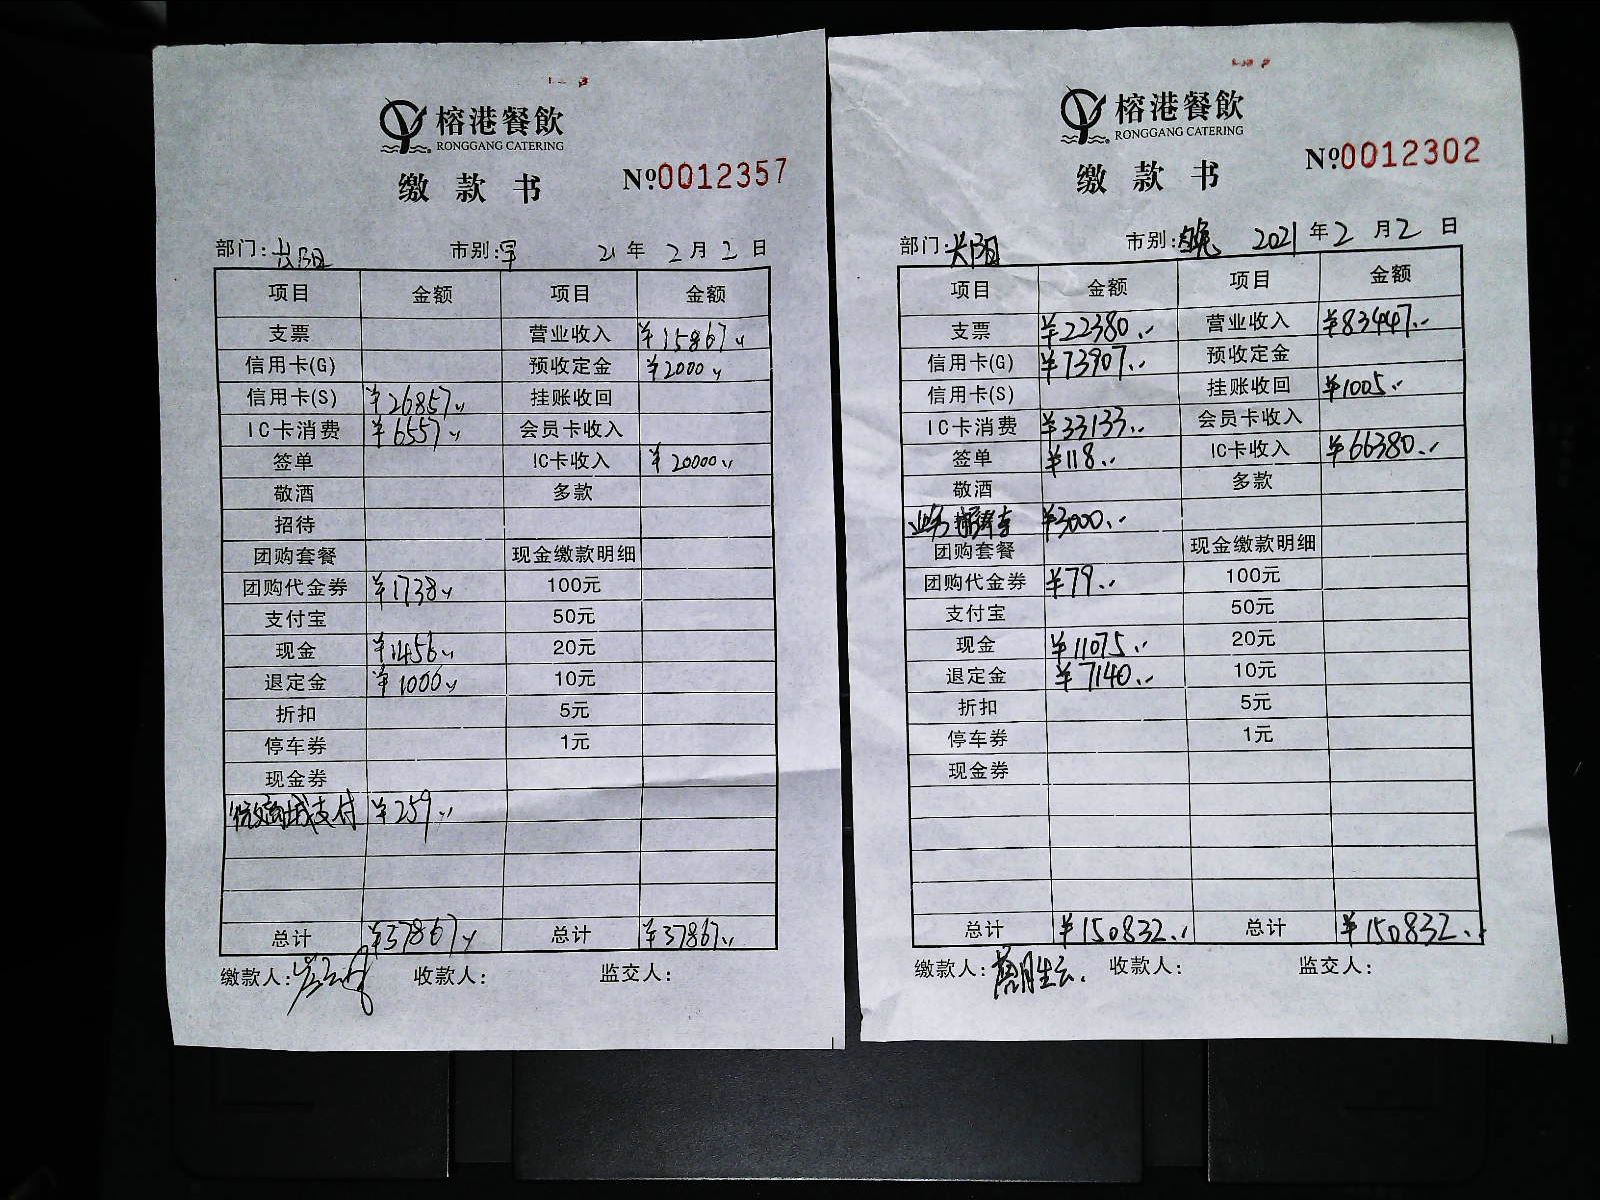 榕港餐飲
RONGGANG CATERING
缴款书
№0012357
部门:长阳 市别:早 21年2月2日
项目 金额 项目 金额
支票 营业收入 ¥15867
信用卡(G) 预收定金 ¥2000
信用卡(S) ¥26857 挂账收回
IC卡消费 ¥6557 会员卡收入
签单 IC卡收入 ¥20000
敬酒 多款
招待
团购套餐 现金缴款明细
团购代金券 ¥1738 100元
支付宝 50元
现金 ¥1456 20元
退定金 ¥1000 10元
折扣 5元
停车券 1元
现金券
商城支付 ¥259
总计 ¥37867 总计 ¥37867
缴款人: 收款人: 监交人:
榕港餐飲
RONGGANG CATERING
缴款书
№0012302
部门:长阳 市别:晚 2021年2月2日
项目 金额 项目 金额
支票 ¥22380 营业收入 ¥83447
信用卡(G) ¥73907 预收定金
信用卡(S) 挂账收回 ¥1005
IC卡消费 ¥33133 会员卡收入
签单 ¥118 IC卡收入 ¥66380
敬酒 多款
¥3000
团购套餐 现金缴款明细
团购代金券 ¥79 100元
支付宝 50元
现金 ¥11075 20元
退定金 ¥7140 10元
折扣 5元
停车券 1元
现金券
总计 ¥150832 总计 ¥150832
缴款人: 收款人: 监交人: